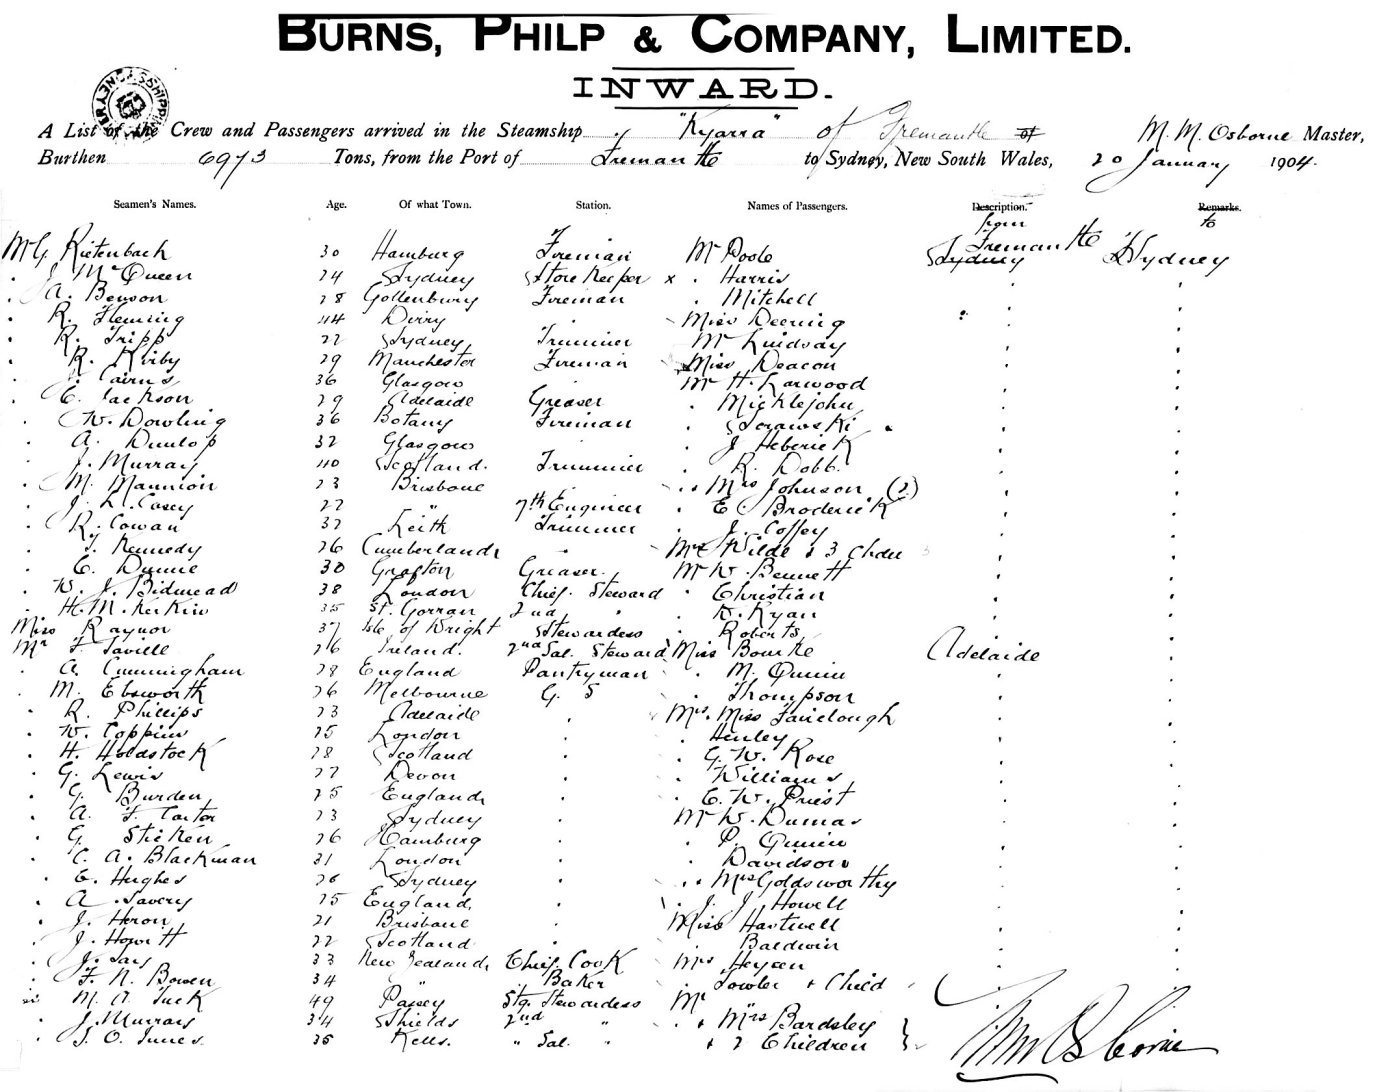 BURNS, PHILP & COMPANY, LIMITED.
INWARD.
A List of the Crew and Passengers arrived in the Steamship "Kyarra" of Fremantle of M. M. Osborne Master,
Burthen 6973 Tons, from the Port of Fremantle to Sydney, New South Wales, 20 January 1904.
Seamen's Names. Age. Of what Town. Station. Names of Passengers. Description. Remarks.
from to
Fremantle
Mr G. Rietenbach 30 Hamburg Fireman Mr Poole Sydney Sydney
J. McQueen 24 Sydney Storekeeper x Harris
A. Benson 28 Gottenburg Fireman Mitchell
R. Fleming 44 Derry Miss Deering
R. Tripp 22 Sydney Trimmer Mr Lindsay
R. Kirby 29 Manchester Fireman Miss Deacon
Cairns 36 Glasgow Mr H. Larwood
C. Jackson 29 Adelaide Greaser Micklejohn
W. Dowling 36 Botany Fireman
A. Dunlop 32 Glasgow J.
J. Murray 40 Scotland. Trimmer R. Dobb
M. Mannion 23 Brisbane Mrs Johnson (2)
J. L. Casey 22 " 7th Engineer E. Broderick
R. Cowan 32 Leith Trimmer J. Coffey
T. Kennedy 26 Cumberland Mrs Wilde & 3 Chdn 3
C. Dunne 30 Grafton Greaser. Mr W. Bennett
W. J. Bidmead 38 London Chief. Steward Christian
H. M. Kerkin 35 St. Gorran 2nd " Ryan
Miss Raynor 37 Isle of Wright Stewardess Roberts
Mr F. Saville 26 Ireland. 2nd Sal. Steward Miss Bourke Adelaide
A. Cunningham 28 England Pantryman M. Quinn
M. Ebsworth 26 Melbourne G. S Thompson
R. Phillips 23 Adelaide Mrs. Miss Fairclough
W. Coppins 25 London Henley
H. Holdstock 28 Scotland G. W. Rose
G. Lewis 27 Devon Williams
G. Burden 25 England E. W. Priest
A. F. Carter 23 Sydney Mr W. Dumas
G. Sticken 26 Hamburg P. Quinn
C. A. Blackman 31 London Davidson
E. Hughes 26 Sydney Mrs Goldsworthy
A. Savery 25 England. J. J. Howell
J. Heron 21 Brisbane Miss Hartwell
J. Howitt 22 Scotland Baldwin
J. 33 New Zealand Chief. Cook Mrs Heysen
F. N. Bowen 34 " Baker Fowler & Child
M. A. Tuck 49 Stg. Stewardess Mr
J. Murray 34 Shields 2nd " & Mrs Bardsley
J. O. Innes. 35 Kells. " Sal. " & 2 Children